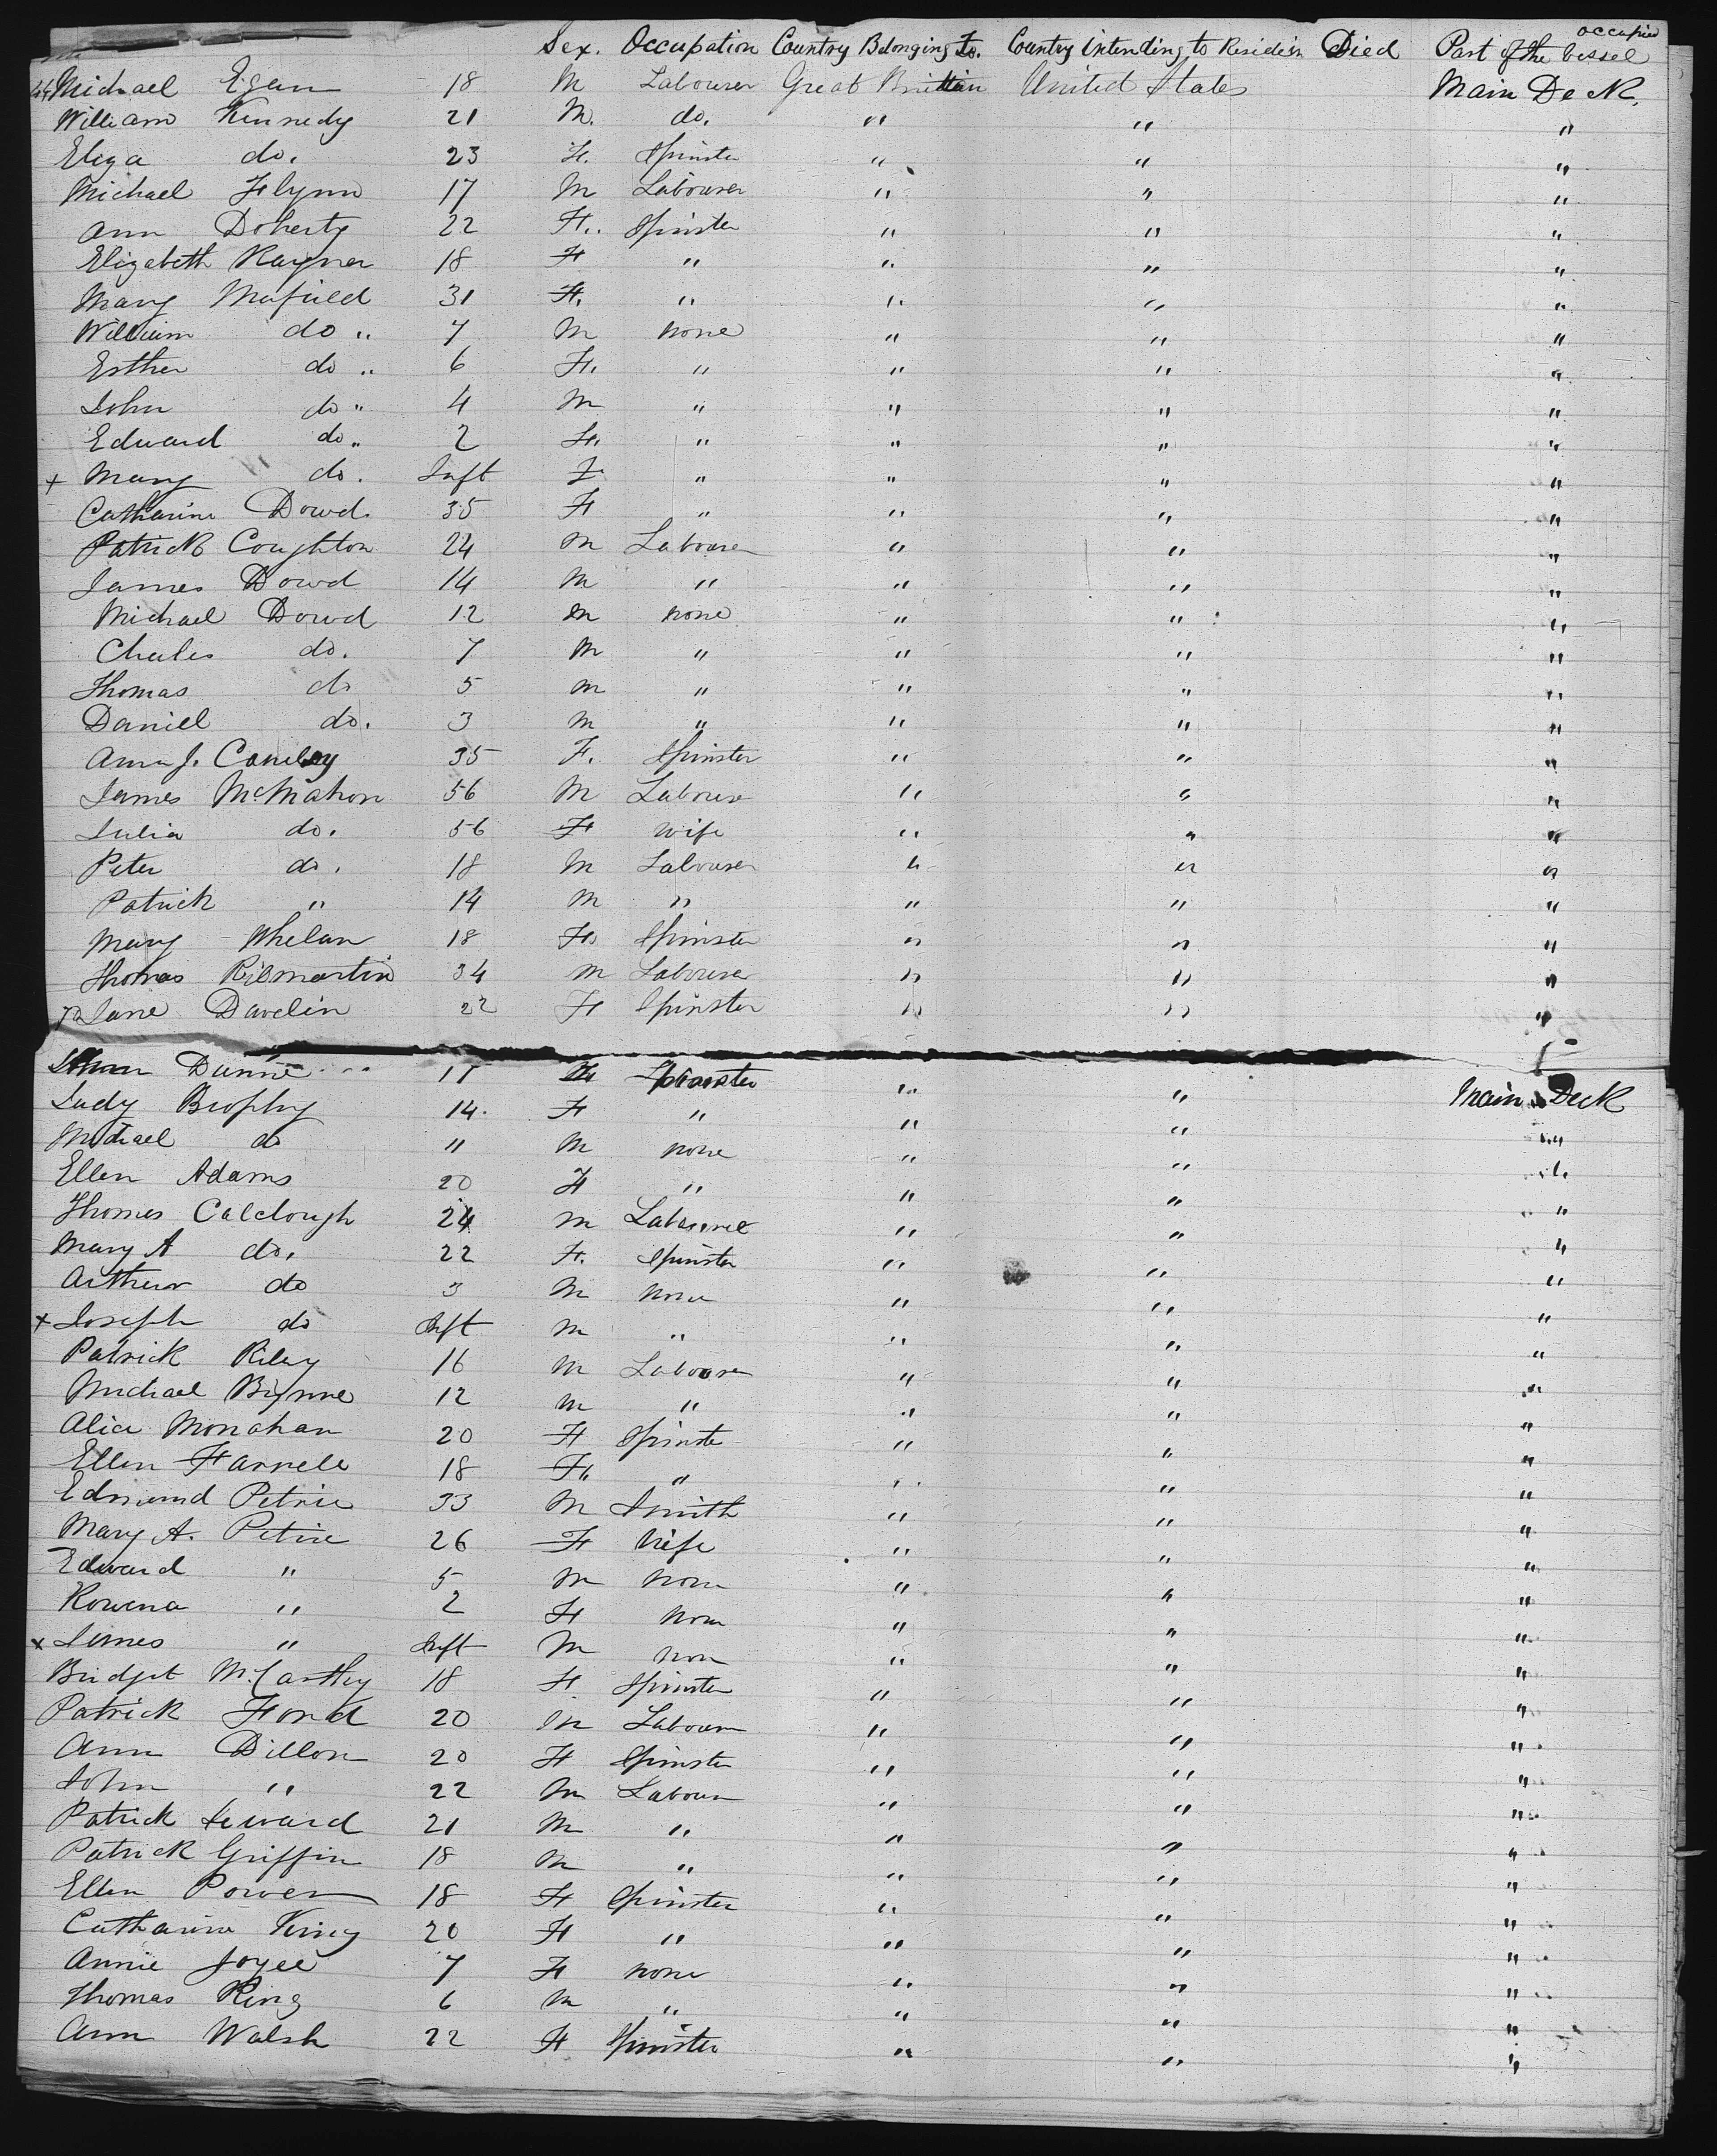 Sex. Occupation Country Belonging To. Country intending to Reside in Died Part of the vessel occupied
Michael Egan 18 M Labourer Great Brittain United States Main Deck,
William Kennedy 21 M. do. " " "
Eliza do. 23 F. Spinster " " "
Michael Flynn 17 M Labourer " " "
Ann Doherty 22 F. Spinster " " "
Elizabeth Raynor 18 F " " " "
Mary 31 F. " " " "
William do " 7 M none " " "
Esther do " 6 F. " " " "
John do " 4 M " " " "
Edward do " 2 F. " " " "
+ Mary do. Inft F " " " "
Catharine Dowd 35 F " " " "
Patrick Coughton 24 M Labourer " " "
James Dowd 14 M " " " "
Michael Dowd 12 M none " " "
Charles do. 7 M " " " "
Thomas do 5 M " " " "
Daniel do. 3 M " " " "
Ann J. 35 F. Spinster " " "
James McMahon 56 M Labourer " " "
Julia do. 56 F wife " " "
Peter do. 18 M Labourer " " "
Patrick " 14 M " " " "
Mary Whelan 18 F. Spinster " " "
Thomas Kilmartin 34 M Labourer " " "
Jane Davelin 22 F Spinster " " "
Dunne 17 F Spinster " " Main Deck
Judy Brophy 14. F " " " "
Michael do " M none " " "
Ellen Adams 20 F " " " "
Thomas Calclough 24 M Labourer " " "
Mary A do. 22 F. Spinster " " "
Arthur do 3 M none " " "
+ Joseph do Inft M " " " "
Patrick Riley 16 M Labourer " " "
Michael Byrne 12 M " " " "
Alice Monahan 20 F Spinster " " "
Ellen Farrell 18 F. " " " "
Edmund Petrie 33 M Smith " " "
Mary A. Petrie 26 F Wife " " "
Edward " 5 M none " " "
Rowena " 2 F none " " "
x James " Inft M non " " "
Bridget McCarthy 18 F Spinster " " "
Patrick Ford 20 M Labourer " " "
Ann Dillon 20 F Spinster " " "
John " 22 M Labour " " "
Patrick Seward 21 M " " " "
Patrick Griffin 18 M " " " "
Ellen Power 18 F Spinster " " "
Catharine King 20 F " " " "
Annie Joyce 7 F none " " "
Thomas King 6 M " " " "
Ann Walsh 22 F Spinster " " "